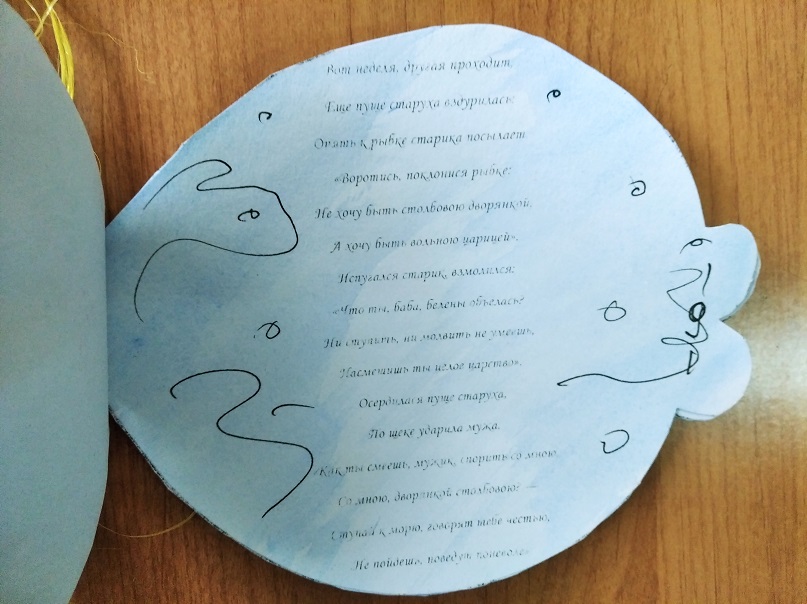 Вот неделя, другая проходит,
Еще пуще старуха вздурилась:
Опять к рыбке старика посылает.
«Воротись, поклонися рыбке:
Не хочу быть столбовою дворянкой,
А хочу быть вольною царицей».
Испугался старик, взмолился:
«Что ты, баба, белены объелась?
Ни ступить, ни молвить не умеешь,
Насмешишь ты целое царство».
Осердилася пуще старуха,
По щеке ударила мужа.
Как ты смеешь, мужик, спорить со мною,
Со мною, дворянкой столбовою? —
Ступай к морю, говорят тебе честью,
Не пойдешь, поведут поневоле»